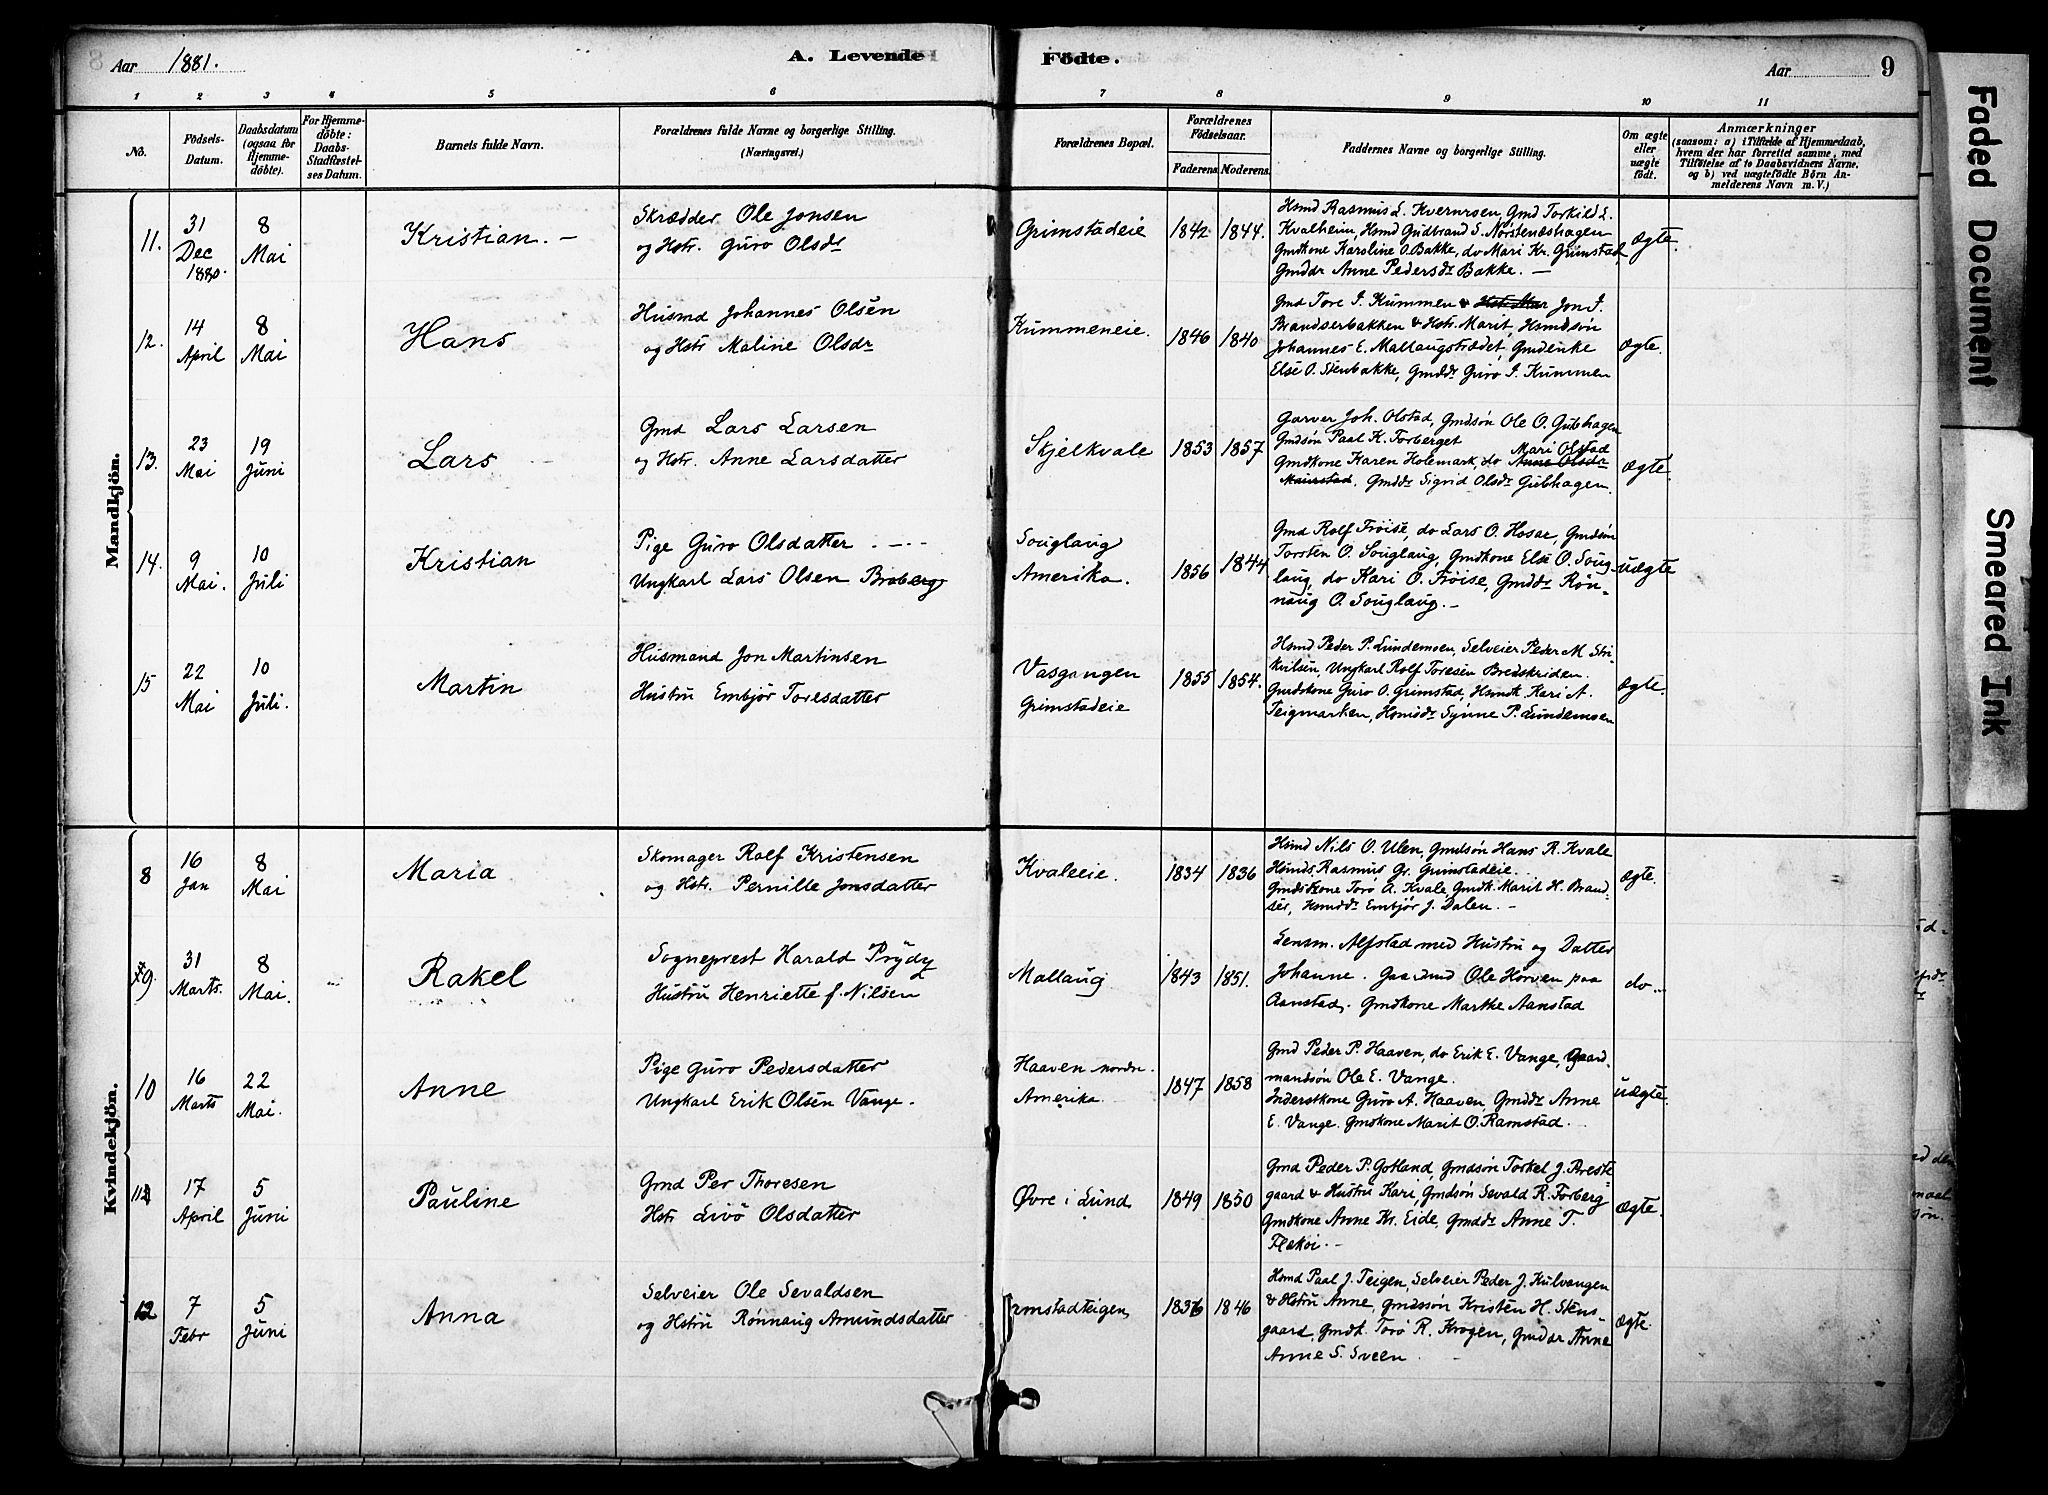 8
Aar 1881.
A. Levende
Födte.
Aar
9
1 2 3 4 5 6 7 8 9 10 11
No.
Födsels-
Datum.
Daabsdatum
(ogsaa for
Hjemme-
döbte).
For Hjemme-
döbte:
Daabs-
Stadfæstel-
ses Datum.
Barnets fulde Navn.
Forældrenes fulde Navne og borgerlige Stilling.
(Næringsvei.)
Forældrenes Bopæl.
Forældrenes
Födselsaar.
Faderens. Moderens.
Faddernes Navne og borgerlige Stilling.
Om ægte
eller
uægte
födt.
Anmærkninger
(saasom: a) i Tilfælde af Hjemmedaab,
hvem der har forrettet samme, med
Tilföielse af to Daabsvidners Navne,
og b) ved uægtefödte Börn An-
melderens Navn m. V.)
Mandkjön.
11.
31
Dec
1880.
8
Mai
Kristian. —
Skrædder Ole Jonsen
og Hstr. Guro Olsdr
Grimstadeie
1842
1844.
Hsmd Rasmus L. Kvernrsen, Gmd Torkild L.
Kvalheim, Hsmd Gudbrand S. Norstenæshagen
Gmdkone Karoline O. Bakke, do Mari Kr. Grimstad,
Gmddr Anne Pedersdr Bakke. —
ægte.
12.
14
April
8
Mai
Hans
Husmd Johannes Olsen
og Hstr Maline Olsdr
Kummeneie.
1846
1840
Gmd Tore I. Kummen & Hstr Mar Jon I.
Brandserbakken & Hstr. Marit, Hsmdsøn
Johannes E. Mallaugstrædet, Gmdenke
Else O. Stenbakke, Gmddr Guro I. Kummen
ægte.
13.
23
Mai
19
Juni
Lars
Gmd Lars Larsen
og Hstr. Anne Larsdatter
Skjelkvale
1853
1857
Garver Joh. Olstad, Gmdsøn Ole O. Gubhagen
Gmdsøn Paal K. Forberget
Mari Olstad
Gmdkone Karen Holemark, do Anne Olsdr
Maurstad. Gmddr Sigrid Olsdr Gubhagen.
ægte.
14.
9
Mai.
10
Juli
Kristian
Pige Guro Olsdatter
Ungkarl Lars Olsen Braberg
Souglaug
Amerika.
1856
1844
Gmd Rolf Frøise, do Lars O. Hosar, Gmdsøn
Torsten O. Souglaug, Gmdkone Else O. Soug-
laug, do Kari O. Frøise, Gmddr Røn-
naug O. Souglaug. —
uægte
15
22
Mai
10
Juli.
Martin
Husmand Jon Martinsen
Hustru Embjør Toresdatter
Vasgangen
Grimstadeie
1855
1854.
Hsmd Peder P. Lundemoen, Selveier Peder M. Stri-
kvilsen, Ungkarl Rolf Toresen Bredskriden.
Gmdskone Guro O. Grimstad, Hsmdk. Kari A.
Teigmarken, Hsmddr Synne P. Lundemoen
ægte.
Kvindekjön.
8
16
Jan
8
Mai
Maria
Skomager Rolf Kristensen
og Hstr. Pernille Jonsdatter
Kvaleeie.
1834
1836
Hsmd Nils O. Ulen, Gmdsøn Hans R. Kvale
Hsmds Rasmus Gr. Grimstadeie.
Gmdskone Torø A. Kvale, Gmdk. Marit H. Brand-
ser, Hsmddr Embjør J. Dalen. —
ægte.
9.
31
Marts.
8
Mai.
Rakel
Sogneprest Harald Prydz
Hustru Henriette f. Nilsen
Mallaug
1843
1851.
Lensm. Alfstad med Hustru og Datter
Johanne. Gaardmd Ole Horven paa
Aanstad, Gmdkone Marthe Aanstad
do
10
16
Marts
22
Mai.
Anne
Pige Guro Pedersdatter
Ungkarl Erik Olsen Vange.
Haaven nordre.
Amerika
1847
1858
Gmd Peder P. Haaven, do Erik E. Vange, Gaard-
mandsøn Ole E. Vange.
Inderstkone Guro A. Haaven, Gmddr Anne
E. Vange. Gmdkone Marit O. Ramstad.
uægte.
11
17
April
5
Juni
Pauline
Gmd Per Thoresen
Hstr Livø Olsdatter
Øvre i Lund
1849
1850
Gmd Peder P. Gotland, Gmdsøn Torkel J. Preste-
gaard & Hustru Kari, Gmdsøn Sevald R. Forberg
Gmdkone Anne Kr. Eide, Gmddr Anne T.
Flækøi. —
ægte.
12
7
Febr
5
Juni
Anna
Selveier Ole Sevaldsen
og Hstru Rønnaug Amundsdatter
rmstadteigen,
1836
1846
Hsmd Paal J. Teigen, Selveier Peder J. Kulvangen
& Hstru Anne, Gmdssøn Kristen H. Stens-
gaard, Gmdk. Torø R. Krogen, Gmddr Anne
Anne S. Sveen.
ægte.
Faded Document
Smeared Ink